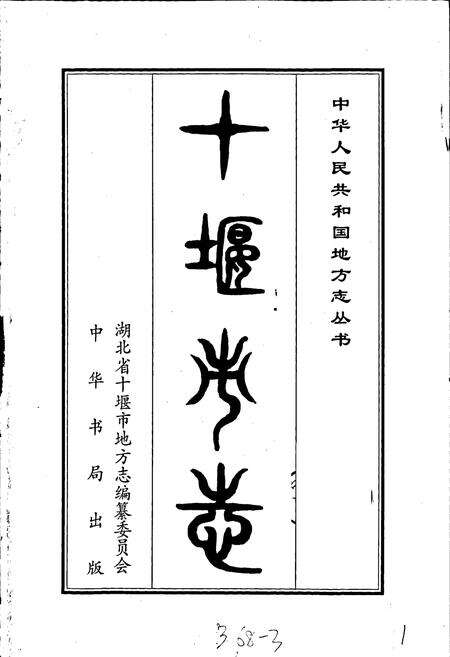 中华人民共和国地方志丛书
十堰市志
湖北省十堰市地方志编纂委员会
中华书局出版
368-3
1